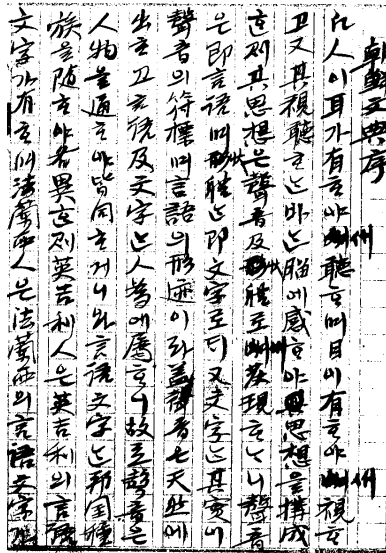 朝鮮文典序
凡人이耳가有ᄒᆞ야聽ᄒᆞ며目이有ᄒᆞ야視ᄒᆞ
고又其視聽ᄒᆞᄂᆞᆫ바ᄂᆞᆫ腦에感ᄒᆞ야思想을搆成
ᄒᆞᆫ則其思想은聲音及形狀로發現ᄒᆞᄂᆞ니聲音
은即言語며形狀ᄂᆞᆫ即文字로ᄃᆡ又文字ᄂᆞᆫ其實이
聲音의符標며言語의形迹이라盖聲音天然에
出ᄒᆞ고言語及文字ᄂᆞᆫ人爲에屬ᄒᆞ니故로聲音은
人物을通ᄒᆞ야皆同ᄒᆞ거니와言語文字ᄂᆞᆫ邦国種
族을隨ᄒᆞ야各異ᄒᆞᆫ則英吉利人은英吉利의言語
文字가有ᄒᆞ며法蘭西人은法蘭西의言語文字